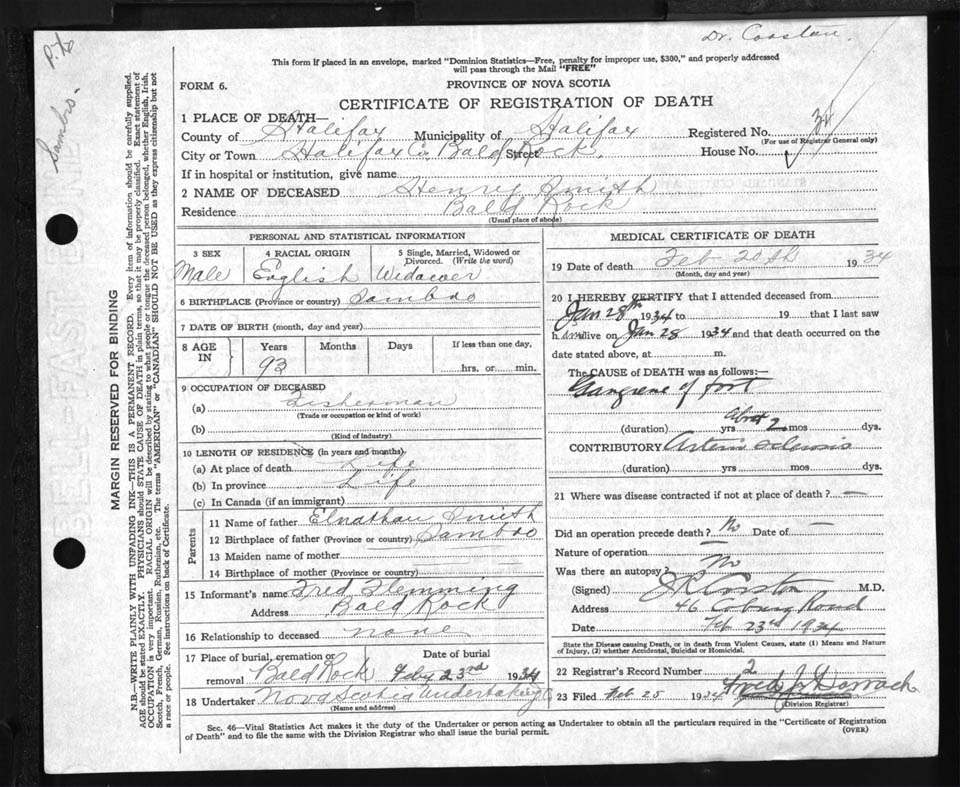 Dr. Coastan.
P.to
Sambro.
This form if placed in an envelope, marked "Dominion Statistics—Free, penalty for improper use, $300," and properly addressed
will pass through the Mail "FREE"
FORM 6.
PROVINCE OF NOVA SCOTIA
CERTIFICATE OF REGISTRATION OF DEATH
1 PLACE OF DEATH—
County of Halifax Municipality of Halifax Registered No. 34
(For use of Registrar General only)
City or Town Halifax Co. Bald Rock. Street House No.
If in hospital or institution, give name
2 NAME OF DECEASED Henry Smith
Residence Bald Rock
(Usual place of abode)
PERSONAL AND STATISTICAL INFORMATION
3 SEX 4 RACIAL ORIGIN 5 Single, Married, Widowed or Divorced. (Write the word)
Male English Widower
6 BIRTHPLACE (Province or country) Sambro
7 DATE OF BIRTH (month, day and year)
8 AGE IN Years Months Days If less than one day,
93 hrs. or min.
9 OCCUPATION OF DECEASED
(a) Fisherman
(Trade or occupation or kind of work)
(b)
(Kind of industry)
10 LENGTH OF RESIDENCE (in years and months)
(a) At place of death Life
(b) In province Life
(c) In Canada (if an immigrant)
Parents
11 Name of father Elnathan Smith
12 Birthplace of father (Province or country) Sambro
13 Maiden name of mother
14 Birthplace of mother (Province or country)
15 Informant's name Fred Flemming
Address Bald Rock
16 Relationship to deceased none
17 Place of burial, cremation or removal Bald Rock Date of burial Feby 23rd 1934
18 Undertaker Nova Scotia Undertaking Co
(Name and address)
MEDICAL CERTIFICATE OF DEATH
19 Date of death Feb 20th 1934
(Month, day and year)
20 I HEREBY CERTIFY that I attended deceased from
Jan 28th 1934 to 19 that I last saw
h im alive on Jan 28 1934 and that death occurred on the
date stated above, at m.
The CAUSE of DEATH was as follows:—
Gangrene of foot
(duration) yrs about 2 mos dys.
CONTRIBUTORY Arterio sclerosis
(duration) yrs mos dys.
21 Where was disease contracted if not at place of death? —
Did an operation precede death? No Date of —
Nature of operation —
Was there an autopsy? No
(Signed) M.D.
Address 46 Coburg Road
Date Feb 23rd 1934
State the Disease causing Death, or in death from Violent Causes, state (1) Means and Nature
of Injury, (2) whether Accidental, Suicidal or Homicidal.
22 Registrar's Record Number 2
23 Filed Feb 25 1934 Fred J Derrach
(Division Registrar)
Sec. 46—Vital Statistics Act makes it the duty of the Undertaker or person acting as Undertaker to obtain all the particulars required in the "Certificate of Registration
of Death" and to file the same with the Division Registrar who shall issue the burial permit.
(OVER)
MARGIN RESERVED FOR BINDING
N.B.—WRITE PLAINLY WITH UNFADING INK—THIS IS A PERMANENT RECORD. Every item of information should be carefully supplied.
AGE should be stated EXACTLY. PHYSICIANS should STATE CAUSE OF DEATH in plain terms, so that it may be properly classified. Exact statement of
OCCUPATION is very important. RACIAL ORIGIN will be described by stating to what people or tongue the deceased person belonged, whether English, Irish,
Scotch, French, German, Russian, Ruthenian, etc. The terms "AMERICAN" or "CANADIAN" SHOULD NOT BE USED as they express citizenship but not
a race or people. See instructions on back of Certificate.